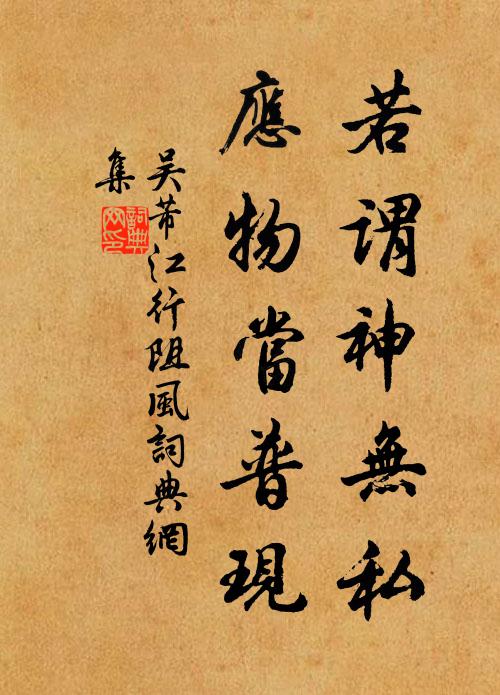 若謂神無私
應物當普現
吴芾江行阻風詞典網
集
詞典網印